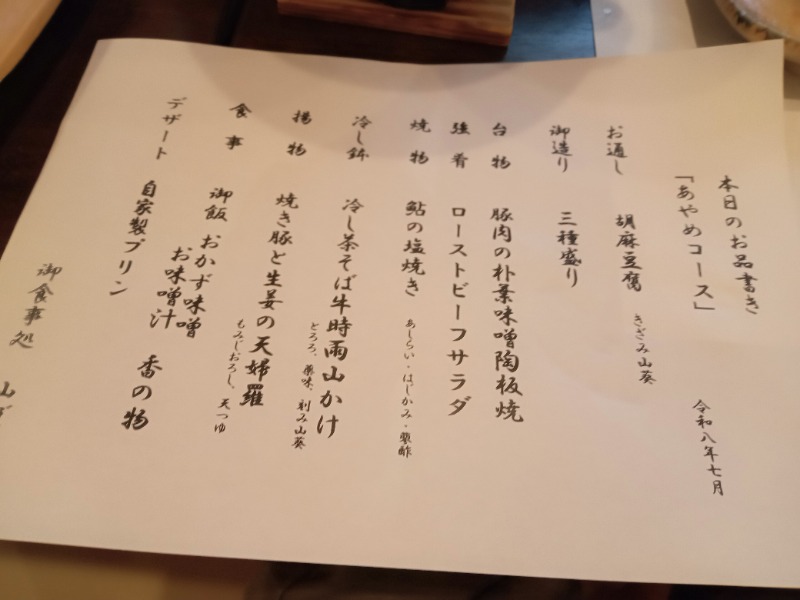 本日のお品書き
「あやめコース」
令和八年七月
お通し 胡麻豆腐 きざみ山葵
御造り 三種盛り
台物 豚肉の朴葉味噌陶板焼
強肴 ローストビーフサラダ
焼物 鮎の塩焼き あしらい・はじかみ・蓼酢
冷し鉢 冷し茶そば牛時雨山かけ
とろろ、薬味、刻み山葵
揚物 焼き豚と生姜の天婦羅
もみじおろし、天つゆ
食事 御飯 おかず味噌
お味噌汁 香の物
デザート 自家製プリン
御食事処 山